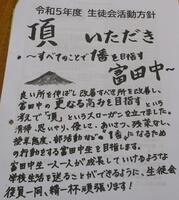 令和5年度 生徒会活動方針
頂 いただき
～すべてのことで1番を目指す
富田中～
良い所を伸ばし改善すべき所を改善し、
富田中の更なる高みを目指すという
意味で「頂」というスローガンを立てました。
清掃、思いやり、優しさ、あいさつ、残菜なし、
授業態度、部活動などの"1番"になるため
の行動をする富田中生を目指します。
富田中生一人一人が成長していけるような
学校生活を送ることができるように、生徒会
役員一同、精一杯頑張ります!